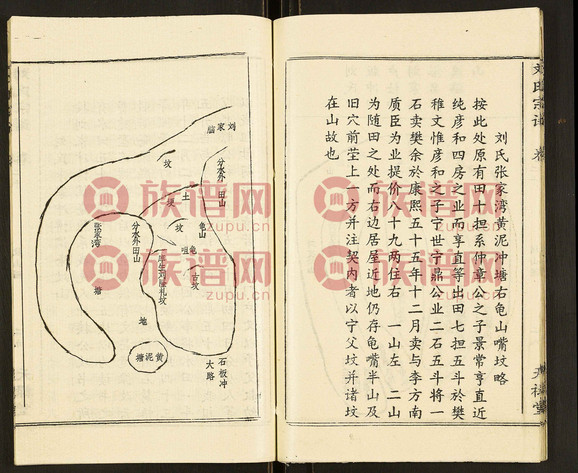 刘氏张家湾黄泥冲塘右龟山嘴坟略
按此处原有田十担系仲章公之子景常亨直近
纯彦和四房之业而享直等出田七担五斗於樊
稚文惟彦和之子宁世宁鼎公业二石五斗将一
石卖樊余於康熙五十五年十二月卖与李方南
质臣为业提价八十九两住右 一山左 二山
为随田之处而右边居屋近地仍存龟嘴半山及
旧穴前茔上一方并注契内者以宁父坟并诸坟
在山故也
刘家脑
坟
分水外 田山
土
埂
坟
龟山
龟咀
古坟
分水外田山
刘陞礼坟
张家湾
塘
地
黄泥塘
石板冲
大路
族谱网
zupu.cn
族谱网
zupu.cn
族谱网
zupu.cn
族谱网
zupu.cn